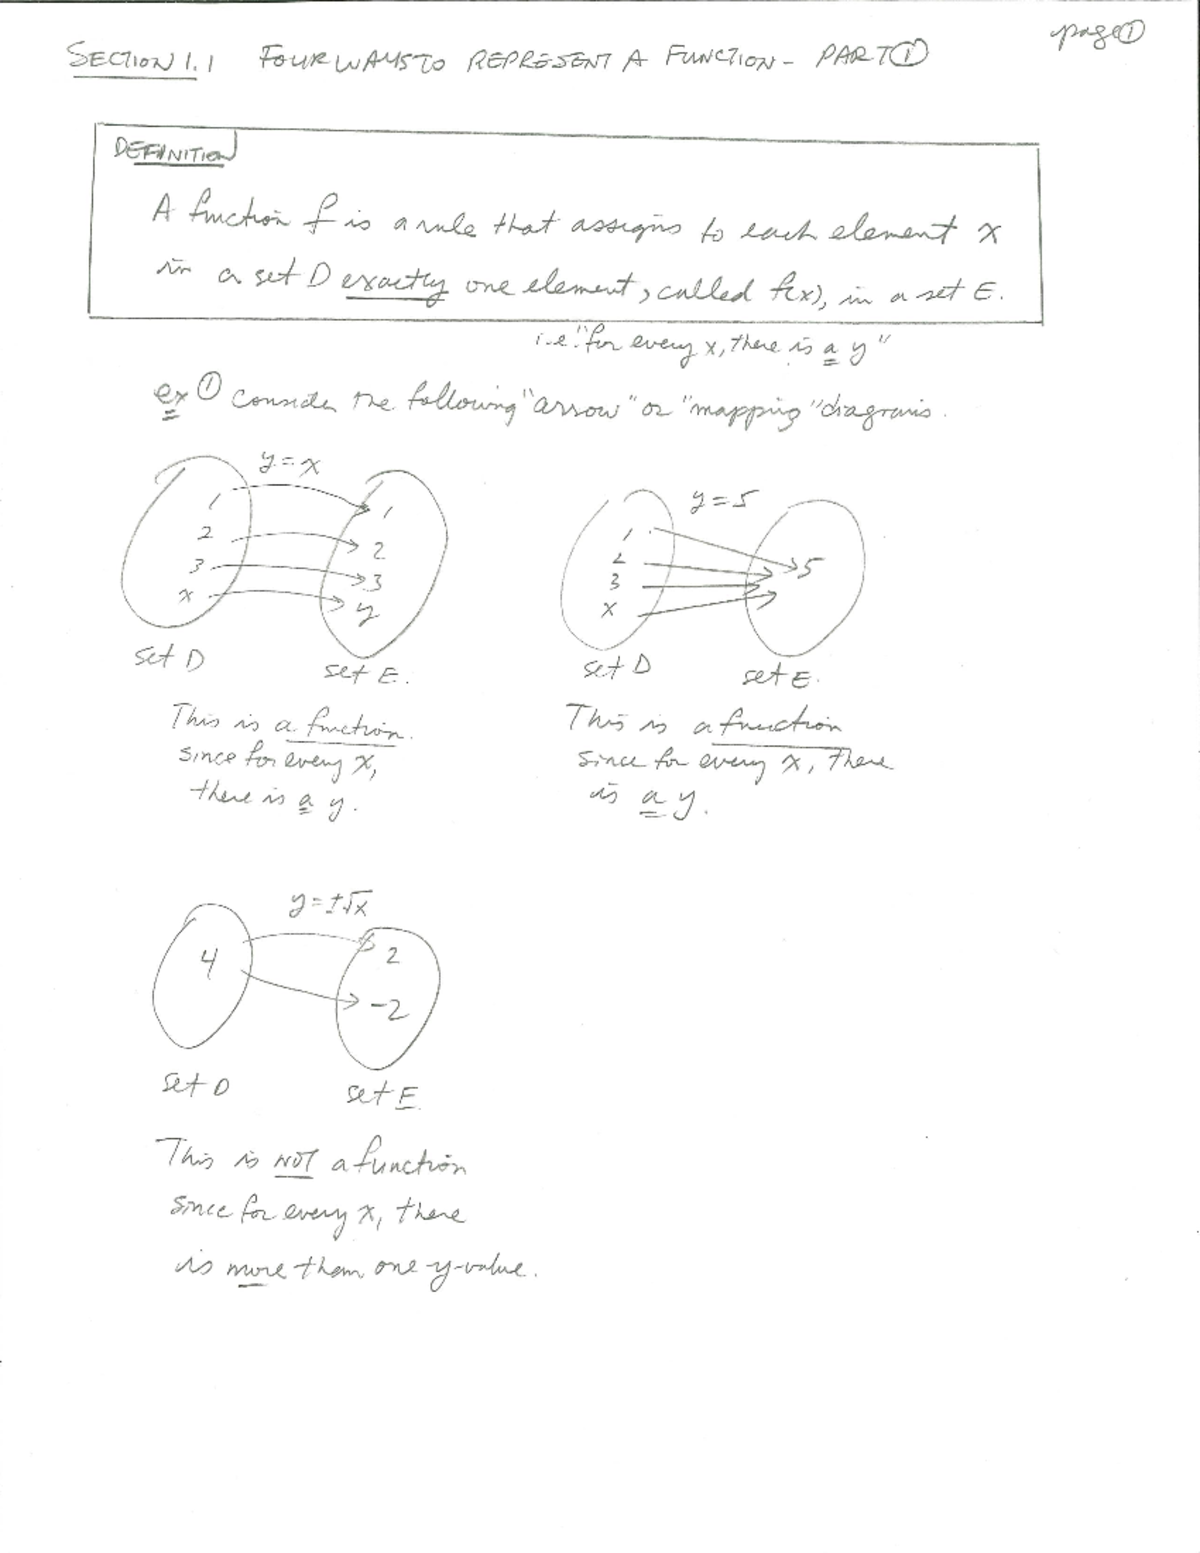 page ①
SECTION 1.1 FOUR WAYS TO REPRESENT A FUNCTION - PART ①
DEFINITION
A function f is a rule that assigns to each element x
in a set D exactly one element, called f(x), in a set E.
i.e. "for every x, there is a y"
ex ① Consider the following "arrow" or "mapping" diagrams.
y = x
1
2
3
x
1
2
3
y
set D
set E.
This is a function.
since for every x,
there is a y.
y = 5
1
2
3
x
5
set D
set E.
This is a function
since for every x, there
is a y.
y = ±√x
4
2
-2
set D
set E.
This is NOT a function
since for every x, there
is more than one y-value.